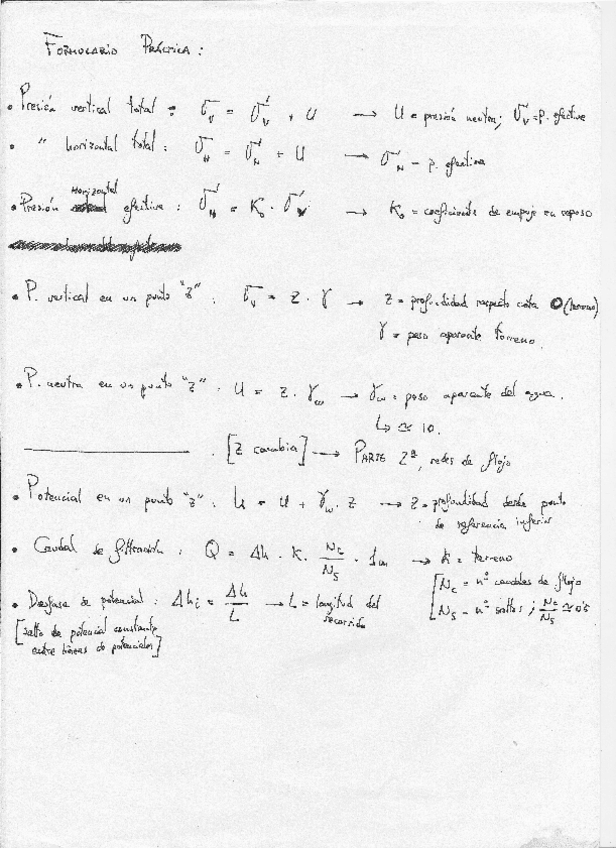 FORMULARIO PRÁCTICA:
• Presión vertical total: σv = σ'v + U → U = presión neutra; σ'v = p. efectiva
• " horizontal total: σH = σ'H + U → σ'H = p. efectiva
• Presión horizontal efectiva: σ'H = Ko · σ'v → Ko = coeficiente de empuje en reposo
• P. vertical en un punto "z": σv = z · γ → z = profundidad respecto cota 0 (terreno)
γ = peso aparente terreno.
• P. neutra en un punto "z": U = z · γw → γw = peso aparente del agua.
↳ ≃ 10.
[z cambia] → PARTE 2ª, redes de flujo
• Potencial en un punto "z": h = u + γw · z → z = profundidad desde punto
de referencia inferior
• Caudal de filtración: Q = Δh · K · Nc/Ns · 1m → K = terreno
[Nc = nº canales de flujo
• Desfase de potencial: Δhi = Δh/L → L = longitud del recorrido
Ns = nº saltos; Nc/Ns ≃ 0'5
[salto de potencial constante
entre líneas de potenciales]